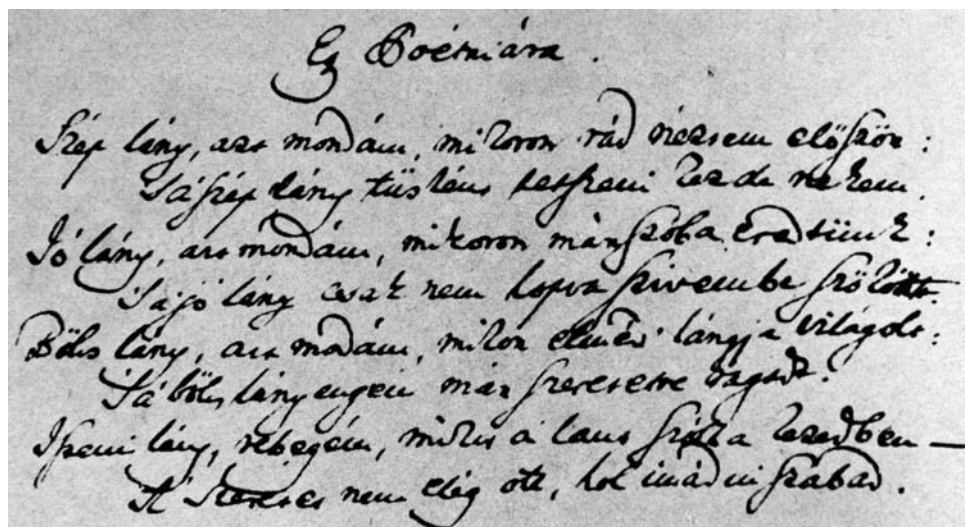 Egy Poétriára.
Szép lány, azt mondám, mikoron rád néztem először:
'S a' szép lány tüstént tetszeni kezde nekem.
Jó lány, azt mondám, mikoron már szóba eredtünk:
'S a' jó lány csak nem lopva szivembe szökött.
Böls lány, azt mondám, mikor elméd' lángja világolt:
'S a' böls lány engem már szeretetre ragadt.
Isteni lány, rebegém, mikor a' lant szólt a kezedben —
A' szeretet nem elég ott, hol imádni szabad.